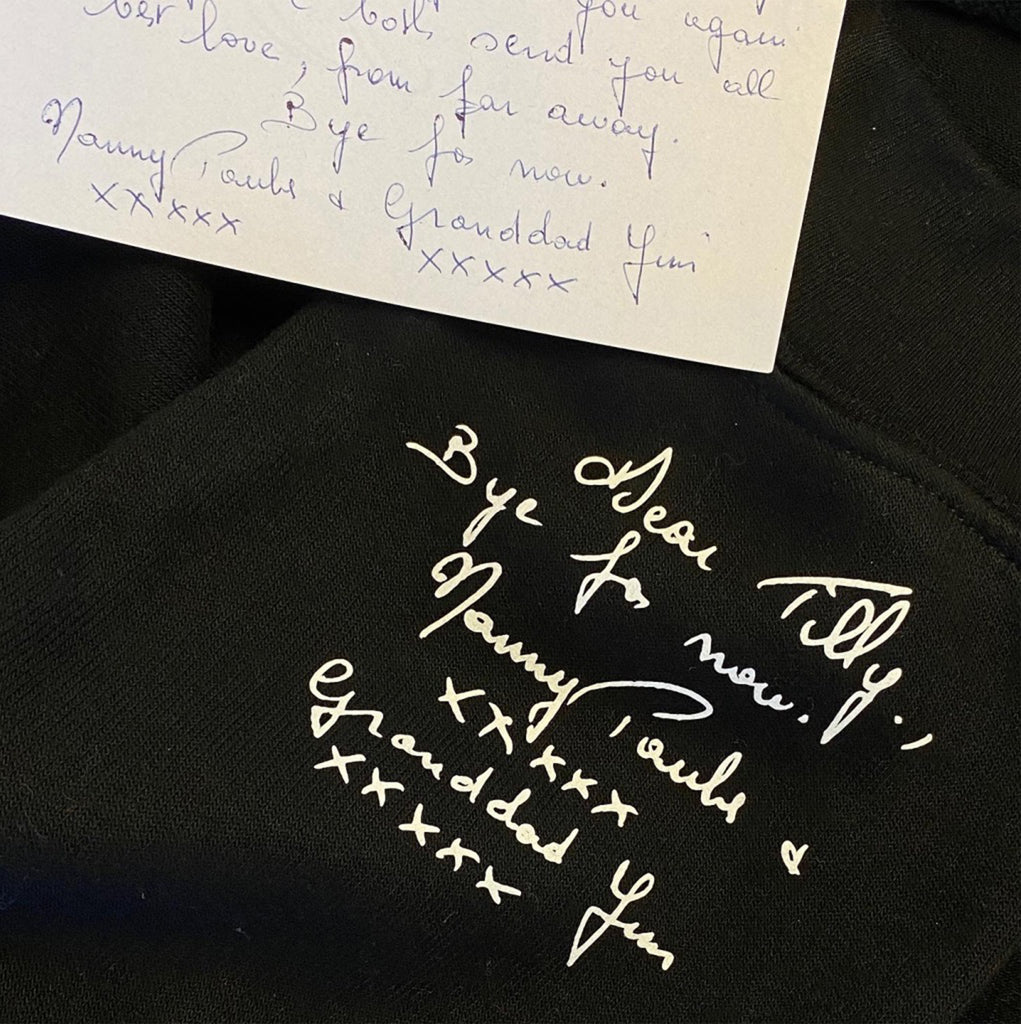 you again
best love, from far away.
both send you all
Bye for now.
Nanny Paule & Granddad Jim
xxxxx xxxxx
Dear Tilly,
Bye for now.
Nanny Paule &
xxxxx
Granddad Jim
xxxxx